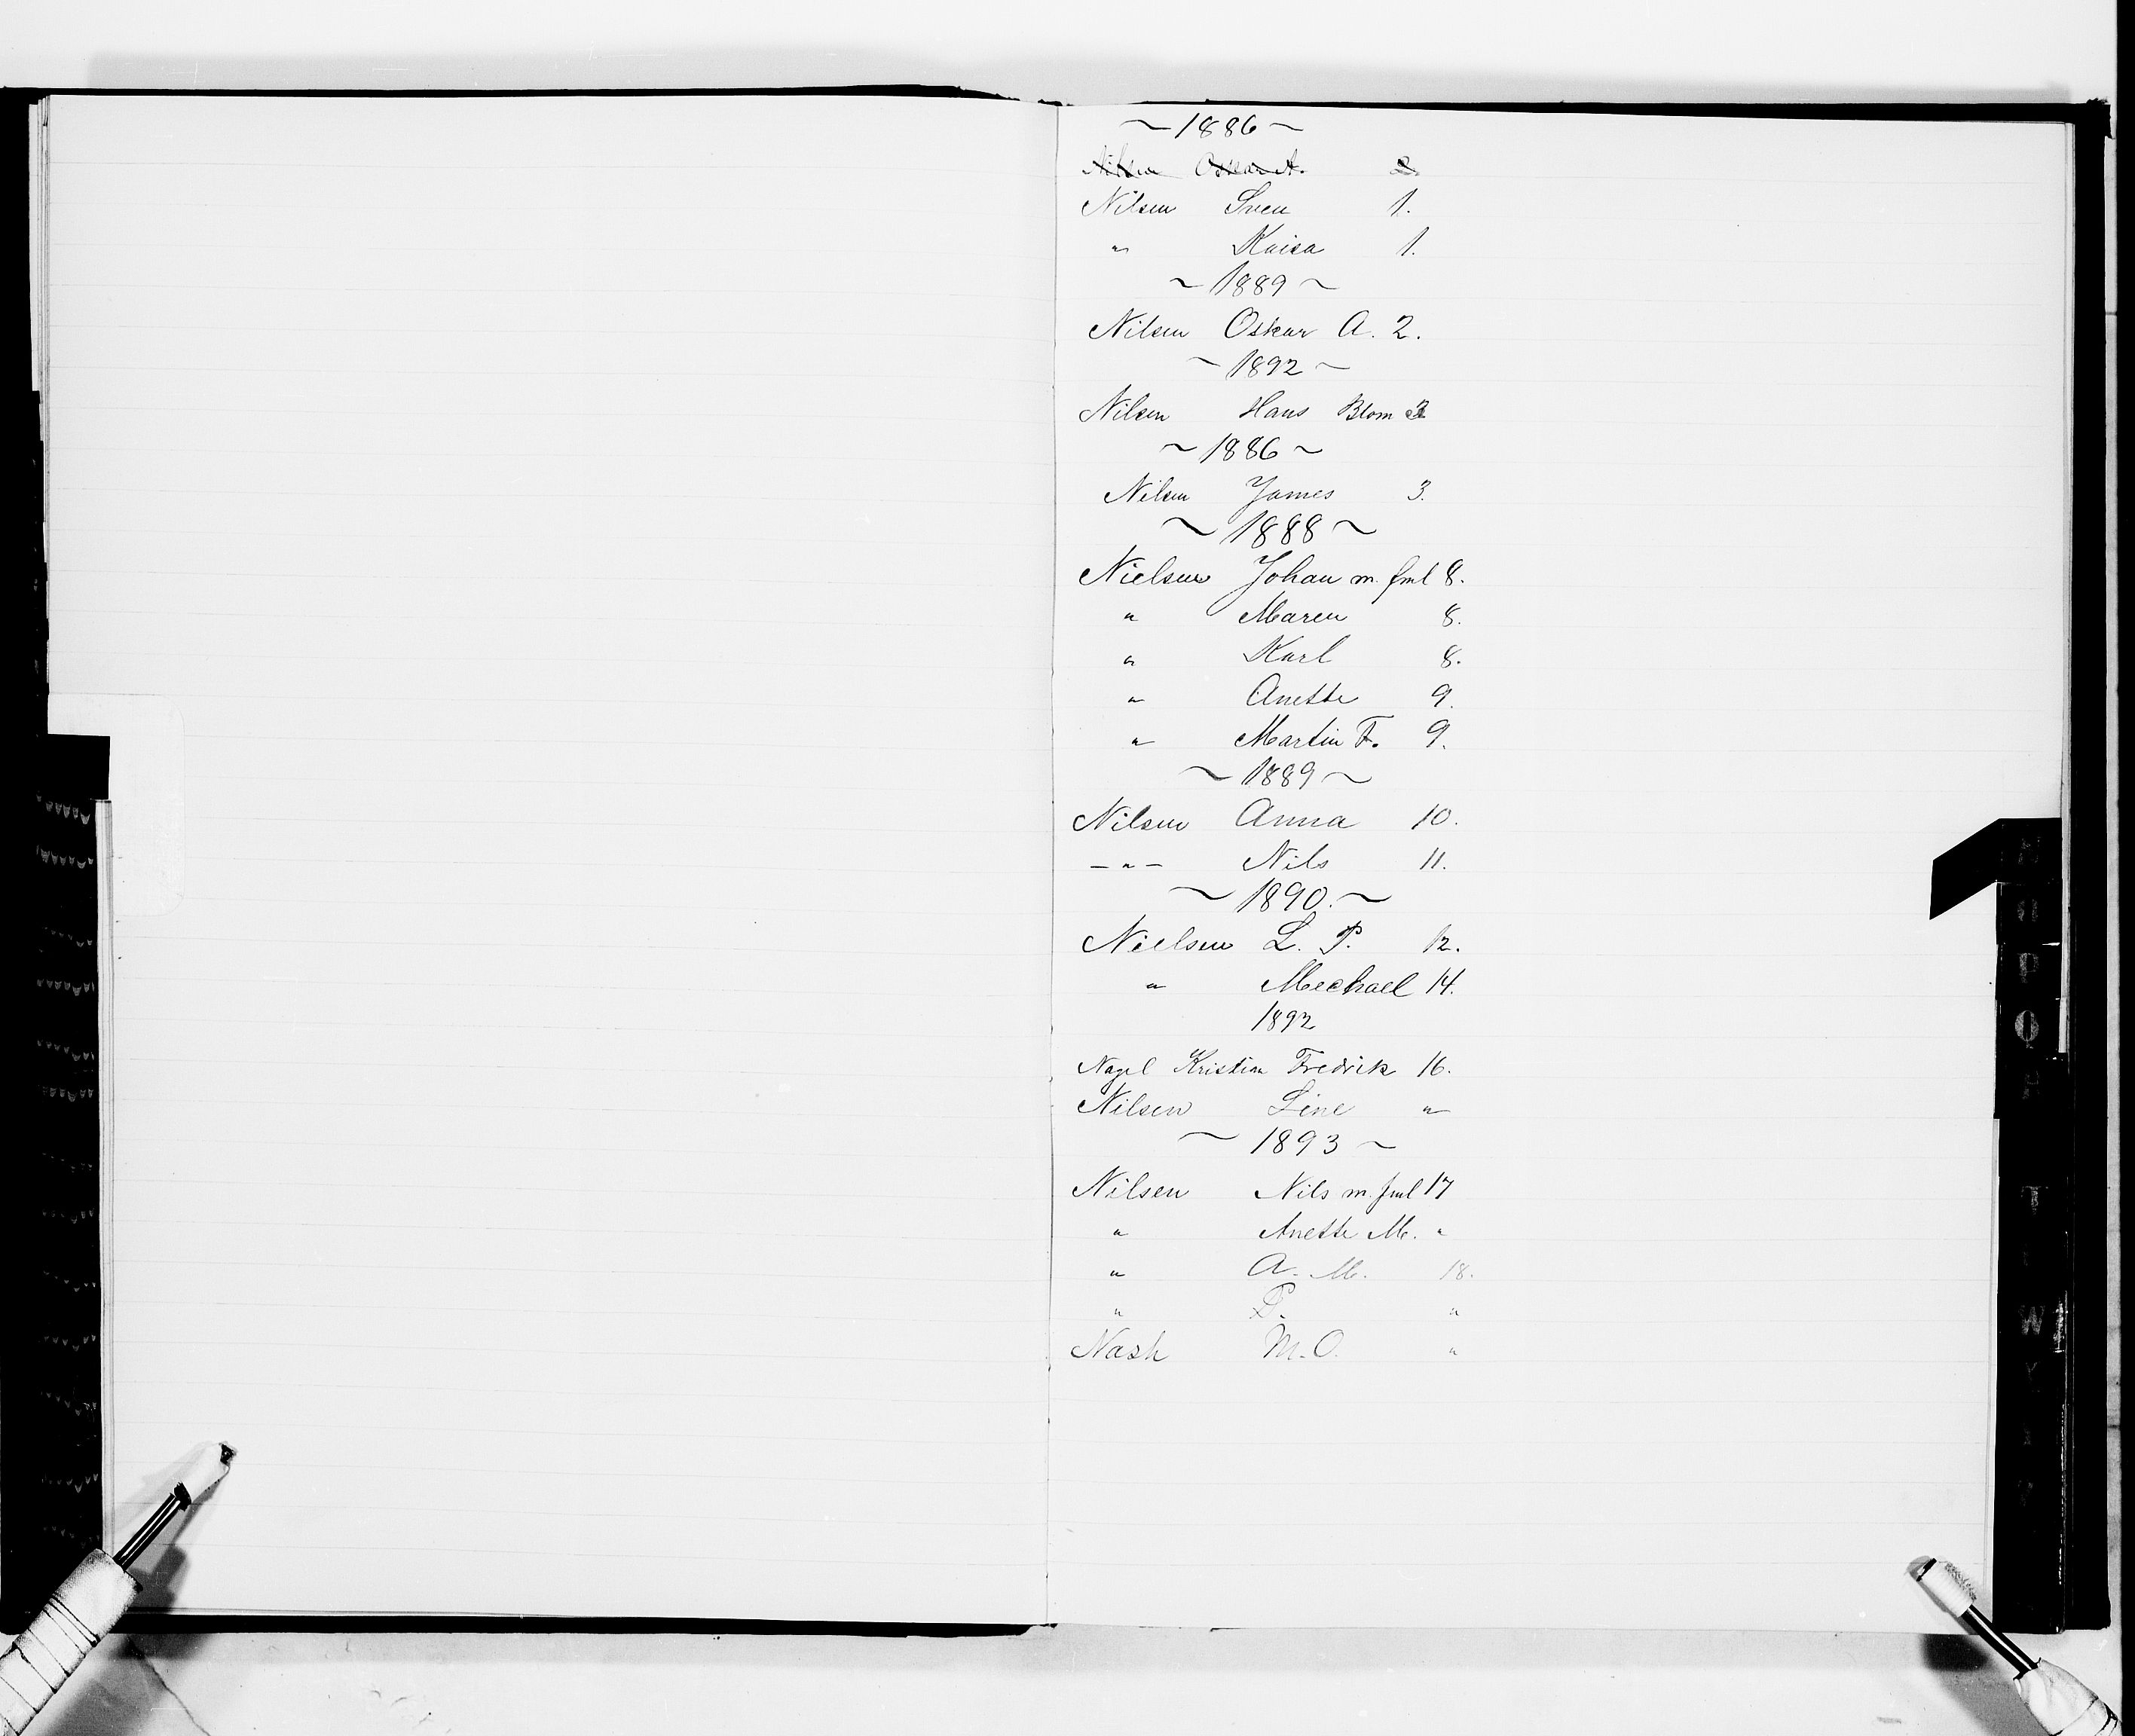 ~ 1886 ~
Nilsen Oskar A. 2.
Nilsen Sven 1.
" Kaisa 1.
~ 1889 ~
Nilsen Oskar A. 2.
~ 1892 ~
Nilsen Hans Blom 3
~ 1886 ~
Nilsen James 3.
~ 1888 ~
Nielsen Johan m. fml 8.
" Maren 8.
" Karl 8.
" Anette 9.
" Martin F. 9.
~ 1889 ~
Nilsen Anna 10.
– " – Nils 11.
~ 1890. ~
Nielsen L. P. 12.
" Mechael 14.
1892
Nagel Kristian Fredrik 16.
Nilsen Line "
~ 1893 ~
Nilsen Nils m. fml 17
" Anette M. "
" A. M. 18.
" P. "
Nash M. O. "